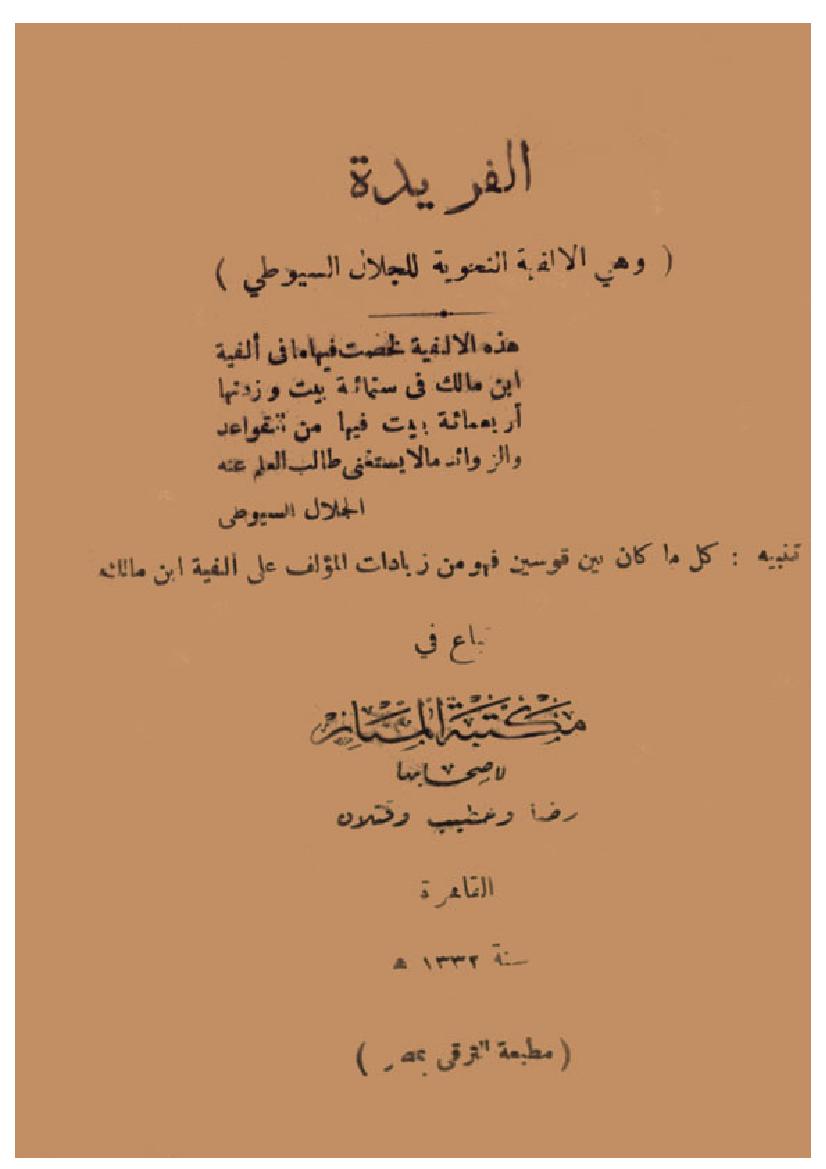 الفريدة
( وهي الالفية النحوية للجلال السيوطي )
هذه الالفية لخصت فيها ما فى ألفية
ابن مالك فى ستمائة بيت وزدتها
أربعمائة بيت فيها من القواعد
والزوائد مالا يستغنى طالب العلم عنه
الجلال السيوطى
تنبيه : كل ما كان بين قوسين فهو من زيادات المؤلف على ألفية ابن مالك
تباع في
مكتبة المنار
لاصحابها
رضا وخطيب وقتلان
القاهرة
سنة ١٣٣٢ هـ
( مطبعة الترقى بمصر )